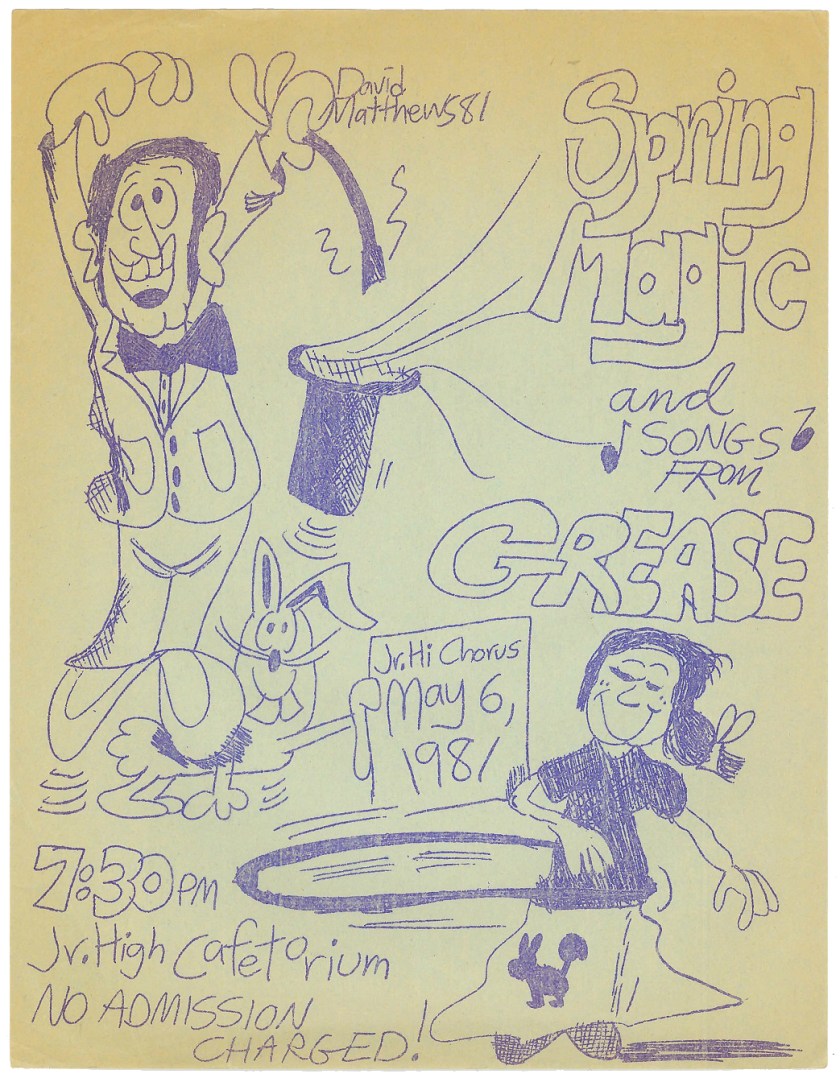 David
Matthews81
Spring
Magic
and
SONGS
FROM
GREASE
Jr. Hi Chorus
May 6,
1981
7:30 PM
Jr. High Cafetorium
NO ADMISSION
CHARGED!